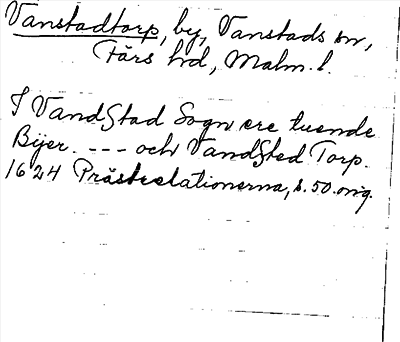 Vanstadtorp, by, Vanstads sn,
Färs hd, Malm. l.
I VandStad Sogn ere tuende
Bÿer. --- och VandSted Torp.
1624 Prästrelationerna, s. 50. orig.